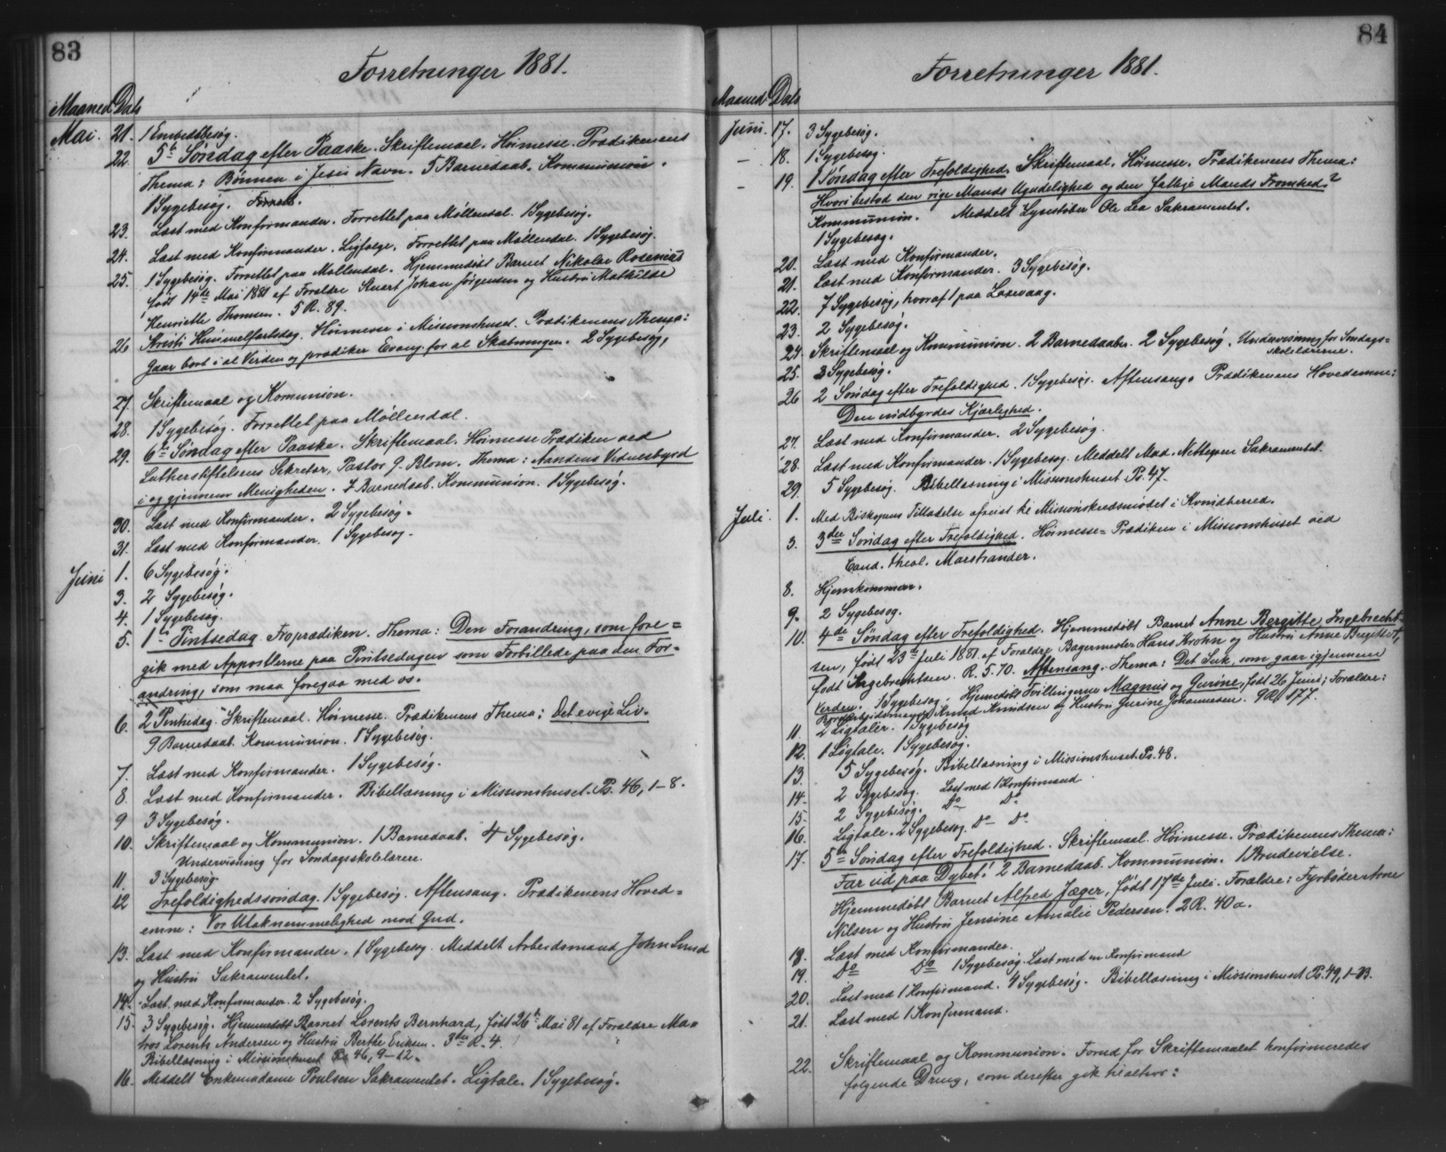 83
Forretninger 1881.
Maaned Dato
Mai. 21. 1 Embedsbesøg.
22. 5te Søndag efter Paaske. Skriftemaal. Høimesse. Prædikenens
Thema: Bønnen i Jesu Navn. 5 Barnedaab. Kommunion.
1 Sygebesøg.
23. Læst med Konfirmander. Forrettet paa Møllendal. 1 Sygebesøg.
24. Læst med Konfirmander. Ligfølge. Forrettet paa Møllendal. 1 Sygebesøg.
25. 1 Sygebesøg. Forrettet paa Møllendal. Hjemmedøbt Barnet Nikolai Rosenius
født 14de Mai 1881 af Forældre Knart Johan Jørgensen og Hustru Mathilde
Henriette Thomsen. 5 R. 89.
26 Kristi Himmelfartsdag. Høimesse i Missionshuset. Prædikenens Thema:
Gaar bort i al Verden og prædiker Evang. for al Skabningen. 2 Sygebesøg,
27. Skriftemaal og Komunion.
28. 1 Sygebesøg. Forrettet paa Møllendal.
29. 6te Søndag efter Paaske. Skriftemaal. Høimesse Prædiken ved
Lutherstiftelsens Sekretær, Pastor G. Blom. Thema: Aandens Vidnesbyrd
i og gjennem Menigheden. 7 Barnedaab. Kommunion. 1 Sygebesøg.
30. Læst med Konfirmander. 2 Sygebesøg.
31. Læst med Konfirmander. 1 Sygebesøg.
Juni 1. 6 Sygebesøg.
3. 2 Sygebesøg.
4. 1 Sygebesøg
5. 1te Pintsedag Froprædiken. Thema: Den Forandring, som fore=
gik med Appostlerne paa Pintsedagen som Forbillede paa den For-
andring, som maa foregaa med os.
6. 2 Pintsedag. Skriftemaal. Høimesse. Prædikenens Thema: Det evige Liv.
9 Barnedaab. Kommunion. 1 Sygebesøg.
7. Læst med Konfirmander. 1 Sygebesøg.
8. Læst med Konfirmander. Bibellæsning i Missionshuset. Ps. 46, 1-8.
9 3 Sygebesøg.
10. Skriftemaal og Kommunion. 1 Barnedaab. 4 Sygebesøg.
Undervisning for Søndagsskolelærere.
11. 3 Sygebesøg
12 Trefoldighedssøndag. 1 Sygebesøg. Aftensang. Prædikenens Hoved=
emne: Vor Utaknemmelighed mod Gud.
13. Læst med Konfirmander. 1 Sygebesøg. Meddelt Arbeidsmand John Lund
og Hustru Sakramentet.
14. Læst med Konfirmander. 2 Sygebesøg.
15. 3 Sygebesøg. Hjemmedøbt Barnet Lorents Bernhard, født 26de Mai 81 af Forældre Ma=
tros Lorents Andersen og Hustru Berthe Eriksen. 3die R. 4.
Bibellæsning i Missionshuset Ps. 46, 9-12.
16. Meddelt Enkemadame Poulsen Sakramentet. Ligtale. 1 Sygebesøg.
84
Forretninger 1881.
Maaned Dato
Juni. 17. 3 Sygebesøg.
– 18. 1 Sygebesøg.
– 19. 1 Søndag efter Trefoldighed. Skriftemaal. Høimesse. Prædikenens Thema:
Hvori bestod den rige Mands Ugudelighed og den fattige Mands Fromhed?
Kommunion. Meddelt Lysestøber Ole Lea Sakramentet.
1 Sygebesøg.
20. Læst med Konfirmander.
21. Læst med Konfirmander. 3 Sygebesøg.
22. 7 Sygebesøg, hvoraf 1 paa Laxevaag.
23. 2 Sygebesøg.
24. Skriftemaal og Kommunion. 2 Barnedaaber. 2 Sygebesøg. Undervisning for Søndags=
skolelærerne.
25. 3 Sygebesøg.
26 2 Søndag efter Trefoldighed. 1 Sygebesøg. Aftensang. Prædikenens Hovedemne:
Den indbyrdes Kjærlighed.
27. Læst med Konfirmander. 2 Sygebesøg.
28. Læst med Konfirmander. 1 Sygebesøg. Meddelt Mad. Sakramentet.
29. 5 Sygebesøg. Bibellæsning i Missionshuset Ps. 47.
Juli. 1. Med Biskopens Tilladelse afreist til Missionskredsmødet i Kvindherred.
3. 3die Søndag efter Trefoldighed. Høimesse= Prædiken i Missionshuset ved
Cand. theol. Marstrander.
8. Hjemkommen.
9. 2 Sygebesøg.
10. 4de Søndag efter Trefoldighed. Hjemmedøbt Barnet Anne Bergitte Ingebrecht-
sen, født 23de Juli 1881 af Forældre Bagermester Hans Krohn og Hustru Anne Birgitte,
født Ingebrechtsen. R. 5.70. Aftensang. Thema: Det Suk, som gaar igjennem
Verden. 1 Sygebesøg. Hjemmedøbt Tvillingerne Magnus og Gurine, født 26 Juni; Forældre:
Knud Knudsen og Hustru Gurine Johannesen. 9 R. 177.
11. 2 Ligtaler. 1 Sygebesøg
12. 1 Ligtale. 1 Sygebesøg.
13. 5 Sygebesøg. Bibellæsning i Missionshuset. Ps. 48.
14. 2 Sygebesøg. Læst med 1 Konfirmand
15. 2 Sygebesøg. Do – Do
16. Ligtale. 2 Sygebesøg. Do – Do
17. 5te Søndag efter Trefoldighed. Skriftemaal. Høimesse. Prædikenens Thema:
Far ud paa Dybet! 2 Barnedaab. Kommunion. 1 Brudevielse.
Hjemmedøbt Barnet Alfred Jæger, født 17de Juli. Forældre: Fyrbøder Arne
Nilsen og Hustru Jensine Amalie Pedersen. 2 R. 40a.
18. Læst med Konfirmander.
19. Do Do 1 Sygebesøg. Læst med en Konfirmand
20. Læst med 1 Konfirmand. 4 Sygebesøg. Bibellæsning i Missionshuset Ps. 49, 1-13.
21. Læst med 1 Konfirmand.
22. Skriftemaal og Kommunion. Forud for Skriftemaalet konfirmeredes
følgende Dreng, som derefter gik til alters: